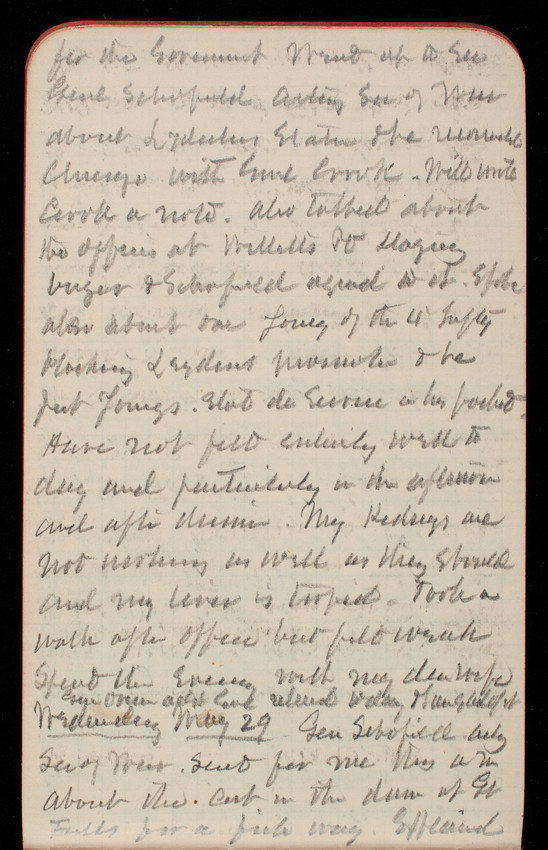 for the Government Went up to See
Genl Schofield acting Sec of War
about Lydecker Etatn & be
Chicago with Genl Crook. Will write
Crook a note. Also talked about
the officers at Willetts Pt
& Schofield agreed to it. Spoke
also about one Young of the 4 Infty
blocking Leydens promotn & he
put Youngs. Etat de Service in his pocket.
Have not felt entirely well to
day and particularly in the afternoon
and after dinner. My Kidneys are
not working as well as they should
and my liver is torpid. Took a
walk after office but felt weak
Spent the Evening with my dear wife
Genl retired today
Wednesday May 29 Gen Schofield actg
Sec of War. Sent for me this a m
about the. cut in the dam at Gt
Falls for a fish way. Explained